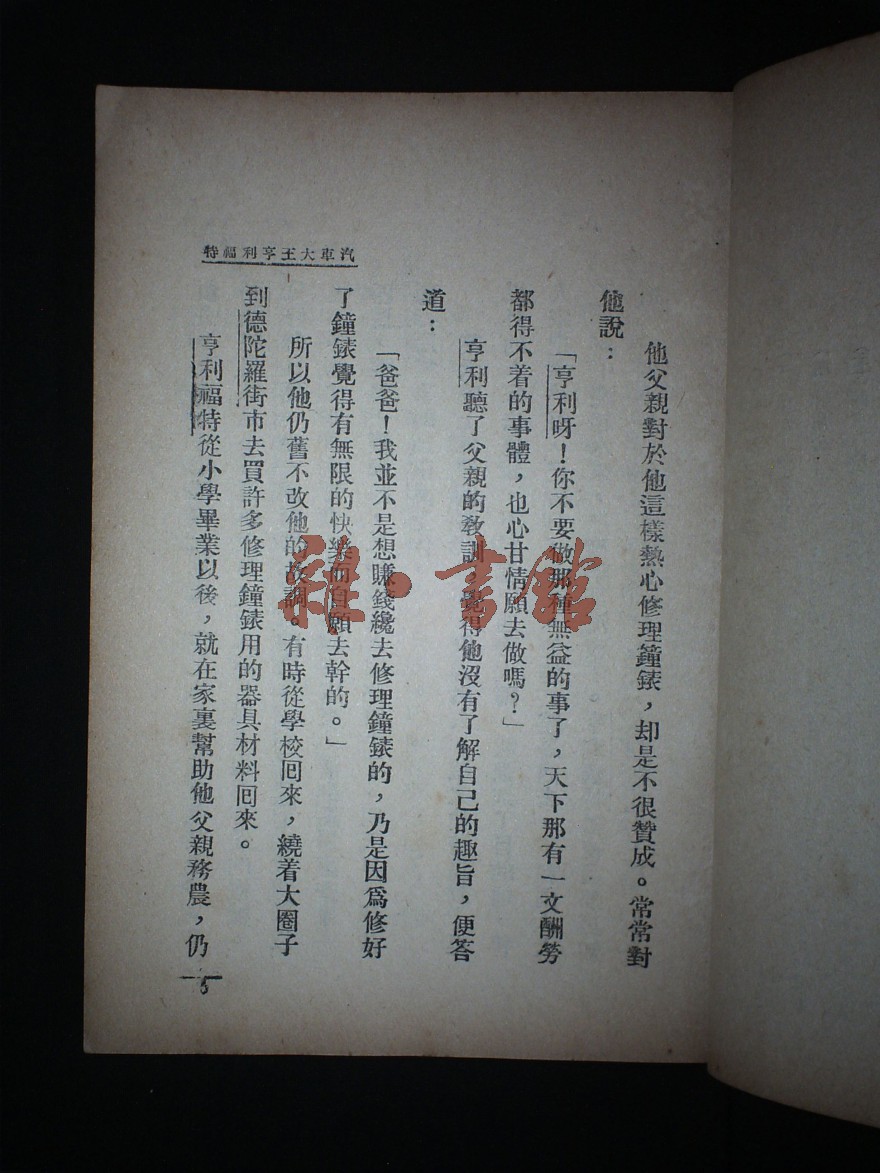 汽車大王亨利福特
他父親對於他這樣熱心修理鐘錶，却是不很贊成。常常對
他說：
「亨利呀！你不要做那種無益的事了，天下那有一文酬勞
都得不着的事體，也心甘情願去做嗎？」
亨利聽了父親的教訓，覺得他沒有了解自己的趣旨，便答
道：
「爸爸！我並不是想賺錢纔去修理鐘錶的，乃是因爲修好
了鐘錶覺得有無限的快樂而自願去幹的。」
所以他仍舊不改他的故調。有時從學校囘來，繞着大圈子
到德陀羅街市去買許多修理鐘錶用的器具材料囘來。
亨利福特從小學畢業以後，就在家裏幫助他父親務農，仍
5
雜·書館